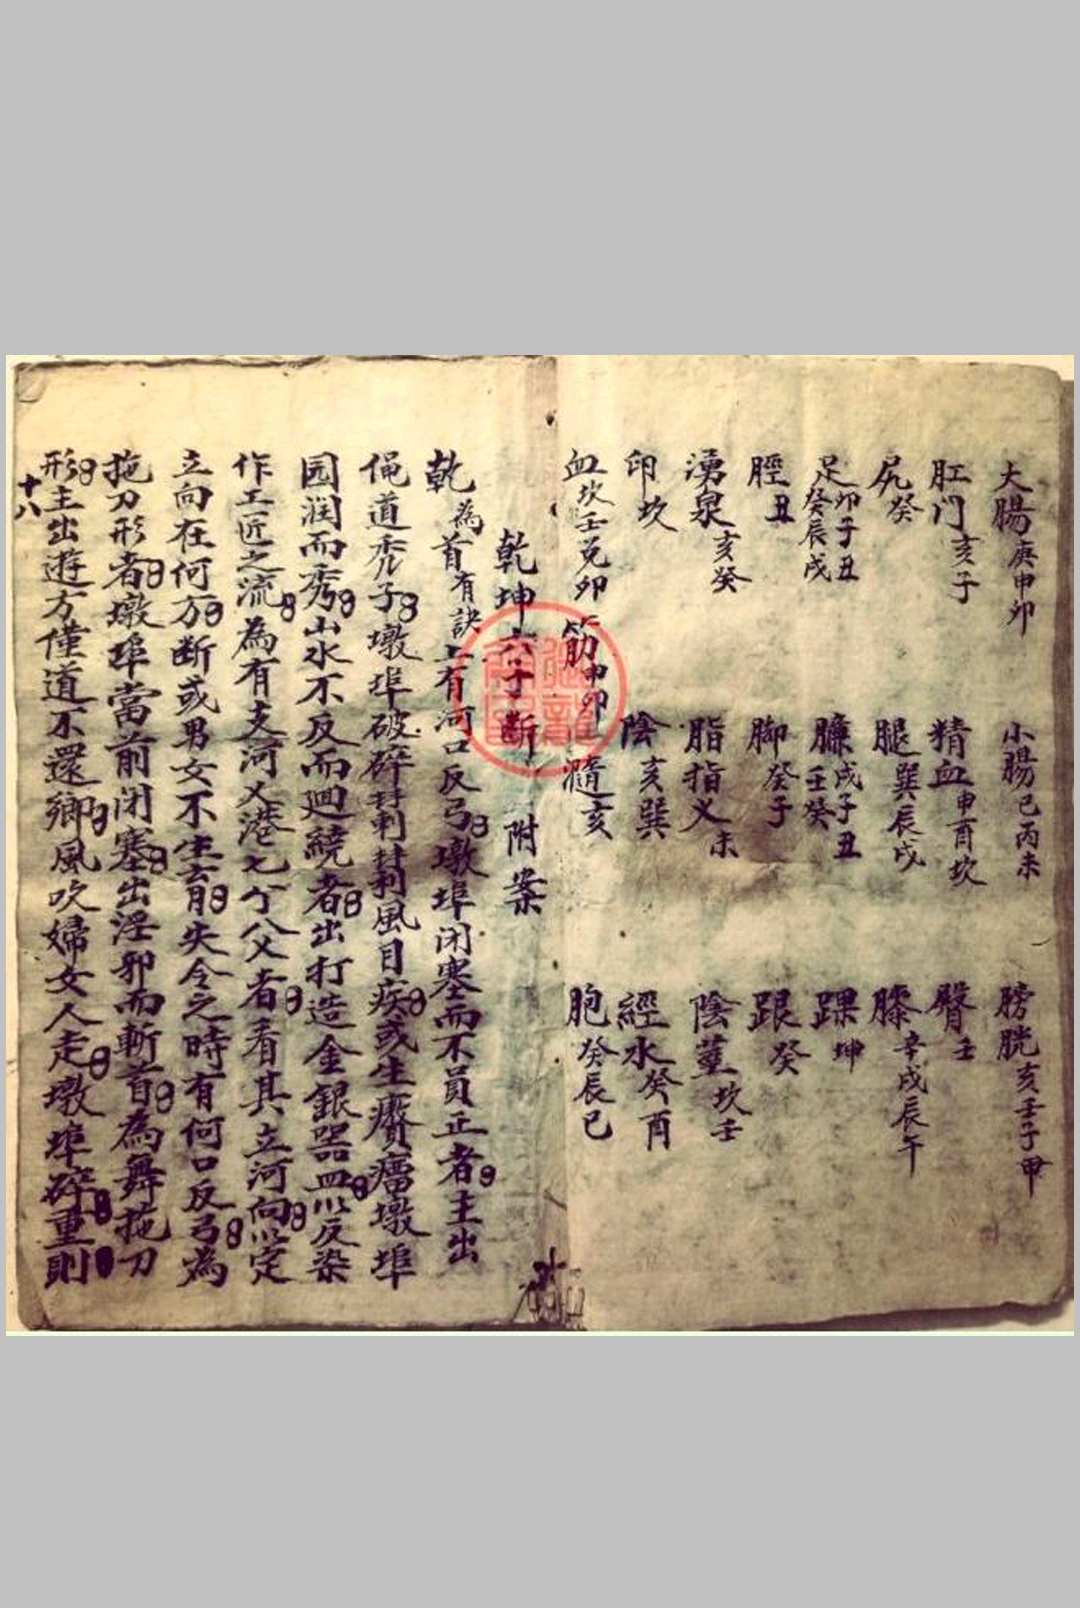 大腸庚申卯 小腸巳丙未 膀胱亥壬子甲
肛门亥子 精血申酉坎 臀壬
尻癸 腿巽辰戌 膝辛戌辰午
足卯子丑癸辰戌 臁戌子丑壬癸 踝坤
脛丑 脚癸子 跟癸
湧泉亥癸 脂指义未 陰莖坎壬
卵坎 陰亥巽 經水癸酉
血坎壬兑卯 筋申卯 髓亥 胞癸辰巳
乾坤六子断 附案
乾為首有訣上有河口反弓墩埠闭塞而不員正者主出
俺道秃子墩埠破碎封剌封剌風目疾或生癭瘤墩埠
园润而秀山水不反而廻繞者出打造金銀器皿以反染
作工匠之流為有支河乂港七个八父者看其立河向以定
立向在何方断或男女不生育失令之時有何口反弓為
拖刀形者墩埠當前闭塞出淫邪而斬首為舞拖刀
形主出遊方僅道不還鄉風吹婦女人走墩埠碎重則
十八